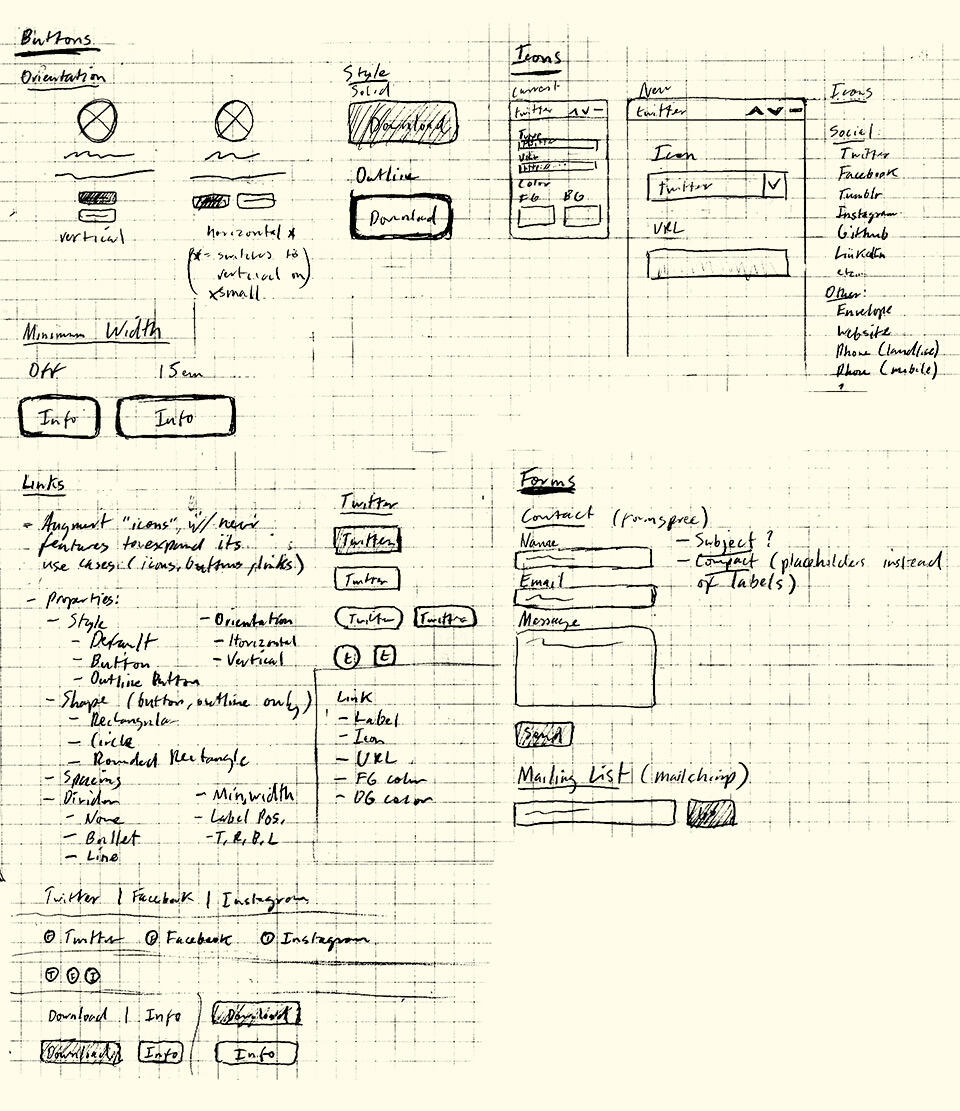 Buttons
Orientation
vertical
horizontal *
(* = switches to
vertical on
xsmall)
Style
Solid
Download
Outline
Download
Minimum Width
Off
15em
Info
Info
Icons
Current
twitter
Type
URL
Color
FG BG
New
twitter
Icon
twitter
URL
Icons
Social:
Twitter
Facebook
Tumblr
Instagram
Github
LinkedIn
etc...
Other:
Envelope
Website
Phone (landline)
Phone (mobile)
?
Links
- Augment "icons", w/ new
features to expand its
use cases (icons, buttons, links)
- Properties:
- Style
- Default
- Button
- Outline Button
- Shape (button, outline only)
- Rectangular
- Circle
- Rounded Rectangle
- Spacing
- Divider
- None
- Bullet
- Line
- Orientation
- Horizontal
- Vertical
- Min, width
- Label Pos,
- T, R, B, L
Twitter
Twitter
Twitter
Twitter Twitter
t t
Link
- Label
- Icon
- URL
- FG color
- BG color
Twitter | Facebook | Instagram
Twitter Facebook Instagram
T F I
Download | Info
Download Info
Download
Info
Forms
Contact (formspree)
Name
Email
Message
Send
- Subject?
- Compact (placeholders instead
of labels)
Mailing List (mailchimp)